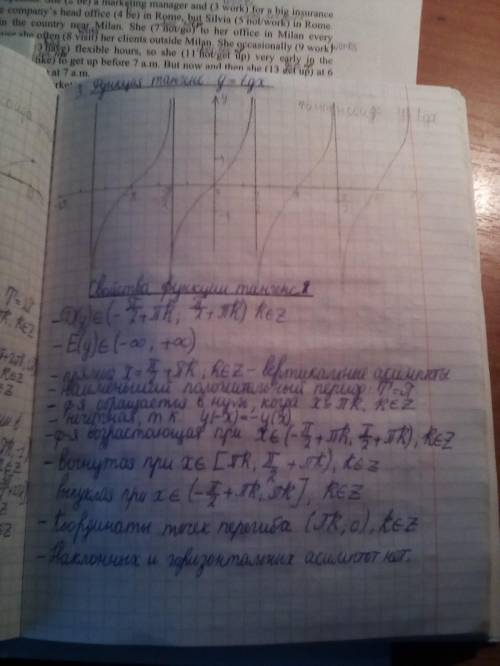 be) a marketing manager and (3 work) for a big insurance
company's head office (4 be) in Rome, but Silvia (5 not/work) in Rome
in the country near Milan. She (7 not/go) to her office in Milan every
she often (8 visit) her clients outside Milan. She occasionally (9 work)
flexible hours, so she (11 not/get up) very early in the
to get up before 7 a.m. But now and then she (13 get up) at 6
at 7 a.m.
Функция тангенс y = tgx
y
тангенсоида y = tgx
Свойства функции тангенса
- D(y)∈(-π/2+πk; π/2+πk) k∈Z
- E(y)∈(-∞, +∞)
- прямые x = π/2 + πk, k∈Z - вертикальные асимптоты
- наименьший положительный период T=π
- ф-я обращается в нуль, когда x = πk, k∈Z
- нечетная, т.к. y(-x)=-y(x)
- ф-я возрастающая при x∈(-π/2+πk, π/2+πk), k∈Z
- вогнутая при x∈[πk, π/2+πk), k∈Z
выпукла при x∈(-π/2+πk, πk], k∈Z
- Координаты точек перегиба (πk, 0), k∈Z
- Наклонных и горизонтальных асимптот нет.